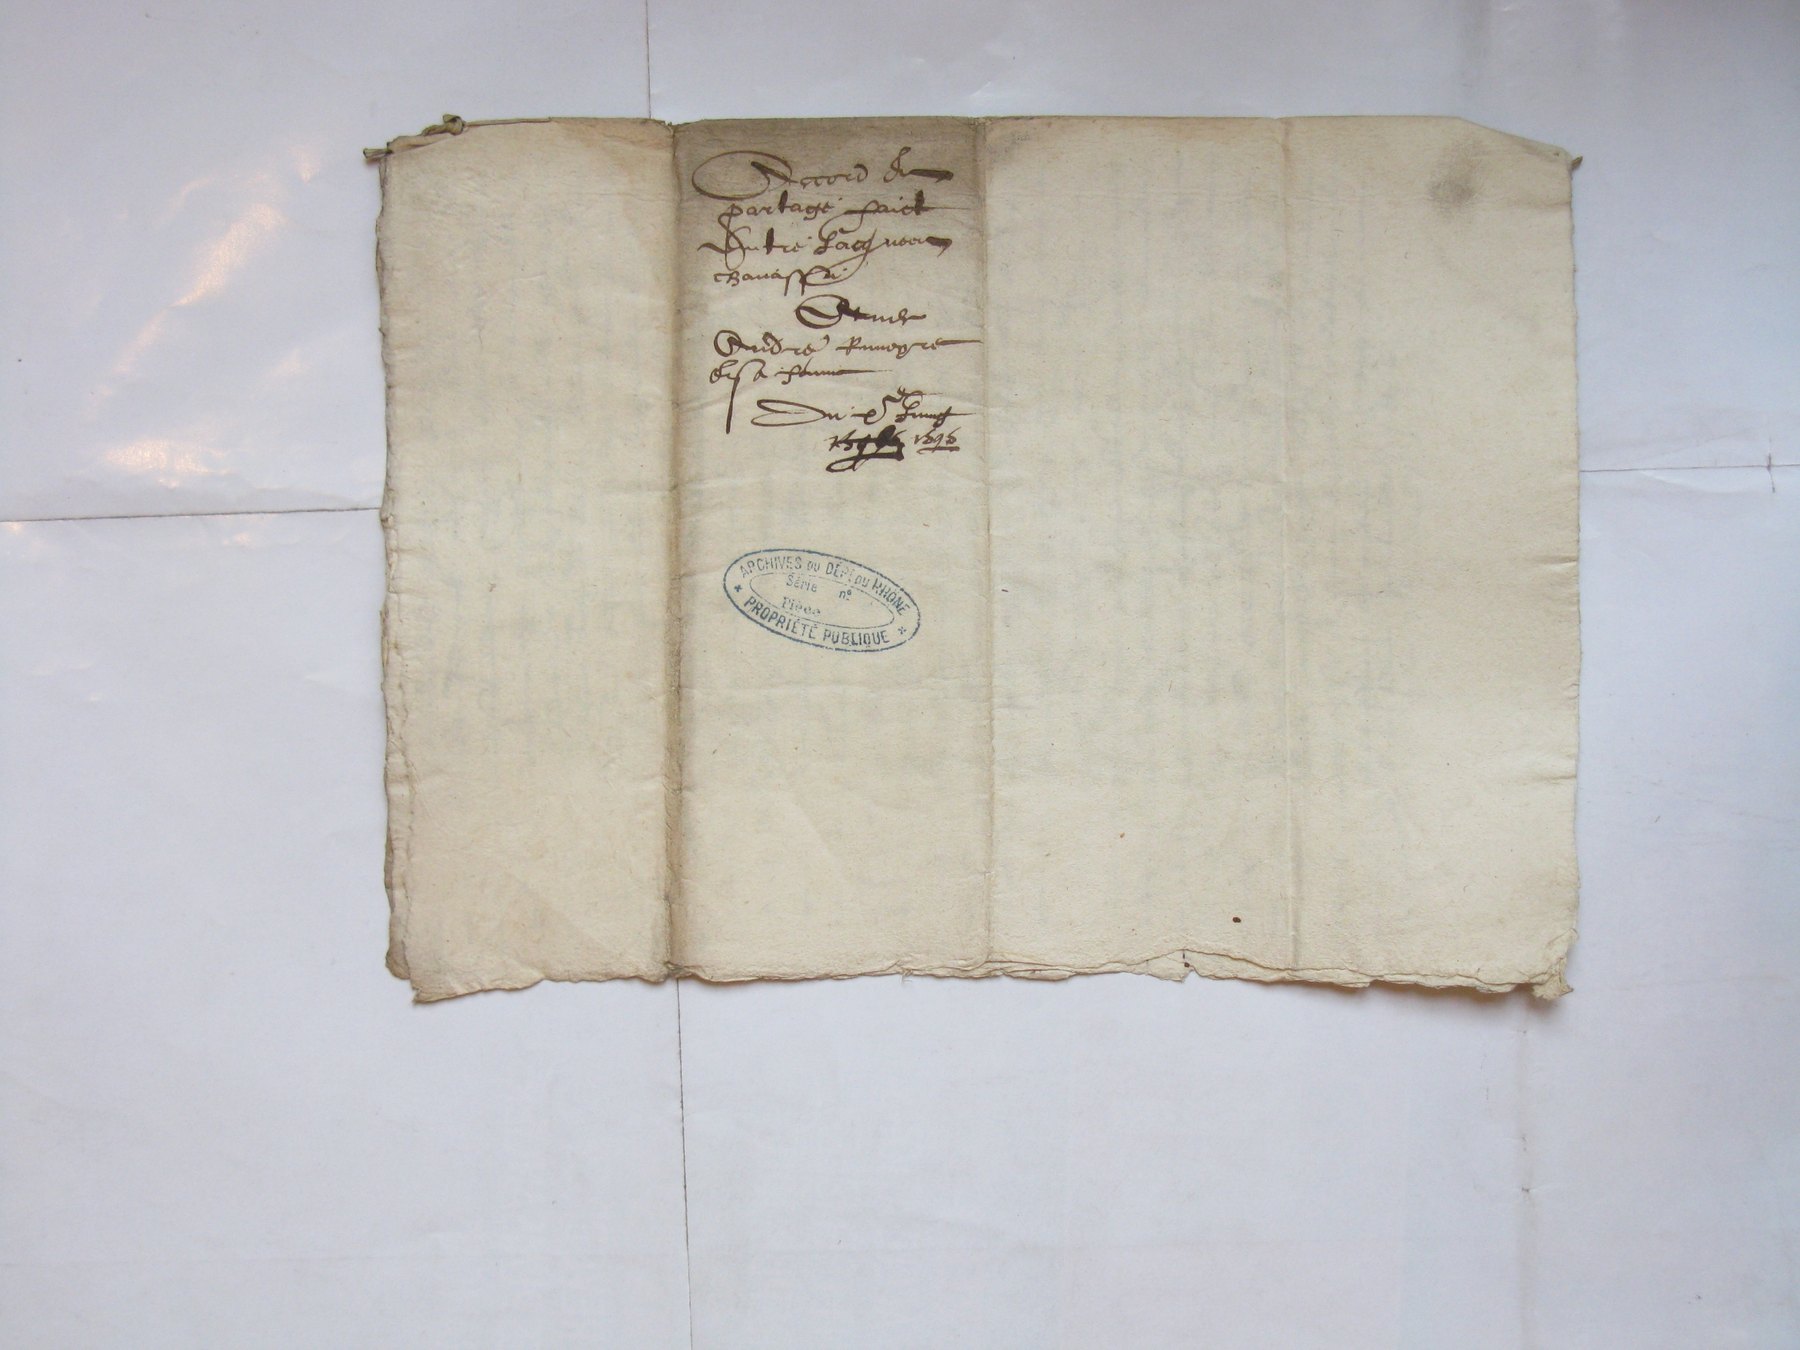 Accord de
partage faict
Entre Jacques
chanassei
Et
Andre
et sa femme
Du xe Juing
1595
ARCHIVES DU DEPT DU RHÔNE
Série nº
Pièce
PROPRIÉTÉ PUBLIQUE